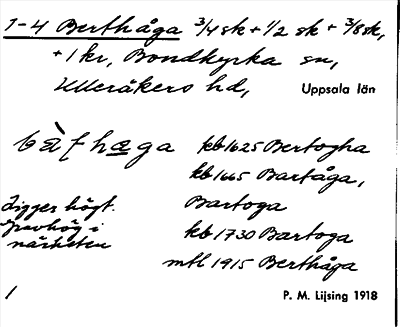 1-4 Berthåga 3/4 sk + 1/2 sk + 3/8 sk,
+ 1 kr, Bondkyrka sn,
Ulleråkers hd, Uppsala län
bàꞘhaga kb 1625 Bertogha
kb 1665 Bartåga,
Ligger högt. Bartoga
Gravhög i kb 1730 Bartoga
närheten
mtl 1915 Berthåga
1 P. M. Lijsing 1918